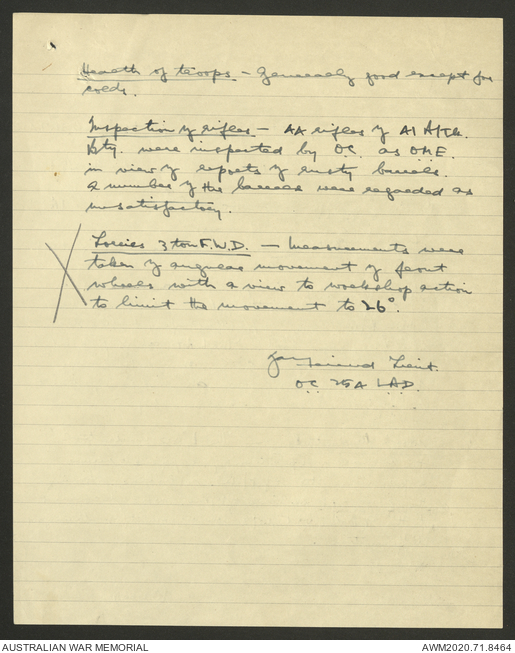 Health of troops - Generally good except for
colds.
Inspection of rifles - AA rifles of A1 ATk.
Bty. were inspected by O.C. as O.M.E.
in view of reports of rusty barrels.
A number of the barrels were regarded as
unsatisfactory.
Lorries 3 ton F.W.D. - Measurements were
taken of angular movement of front
wheels with a view to workshop action
to limit the movement to 26°.
Lieut.
O.C. 25A L.A.D.
AUSTRALIAN WAR MEMORIAL
AWM2020.71.8464